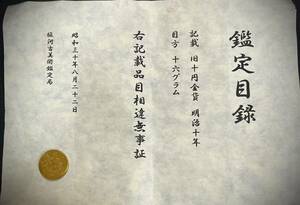 鑑定目録
記載 旧十円金貨 明治十年
目方 十六グラム
右記載品目相違無事証
昭和三十年八月二十二日
駿河古美術鑑定局